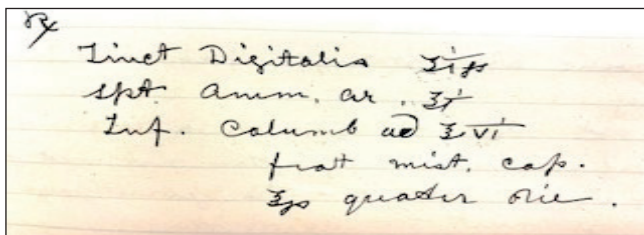 ℞
Tinct Digitalis ʒiss
Spt. Amm. Ar. ʒi
Inf. Columb ad ℥vi
fiat mist. cap.
℥ss quater die.